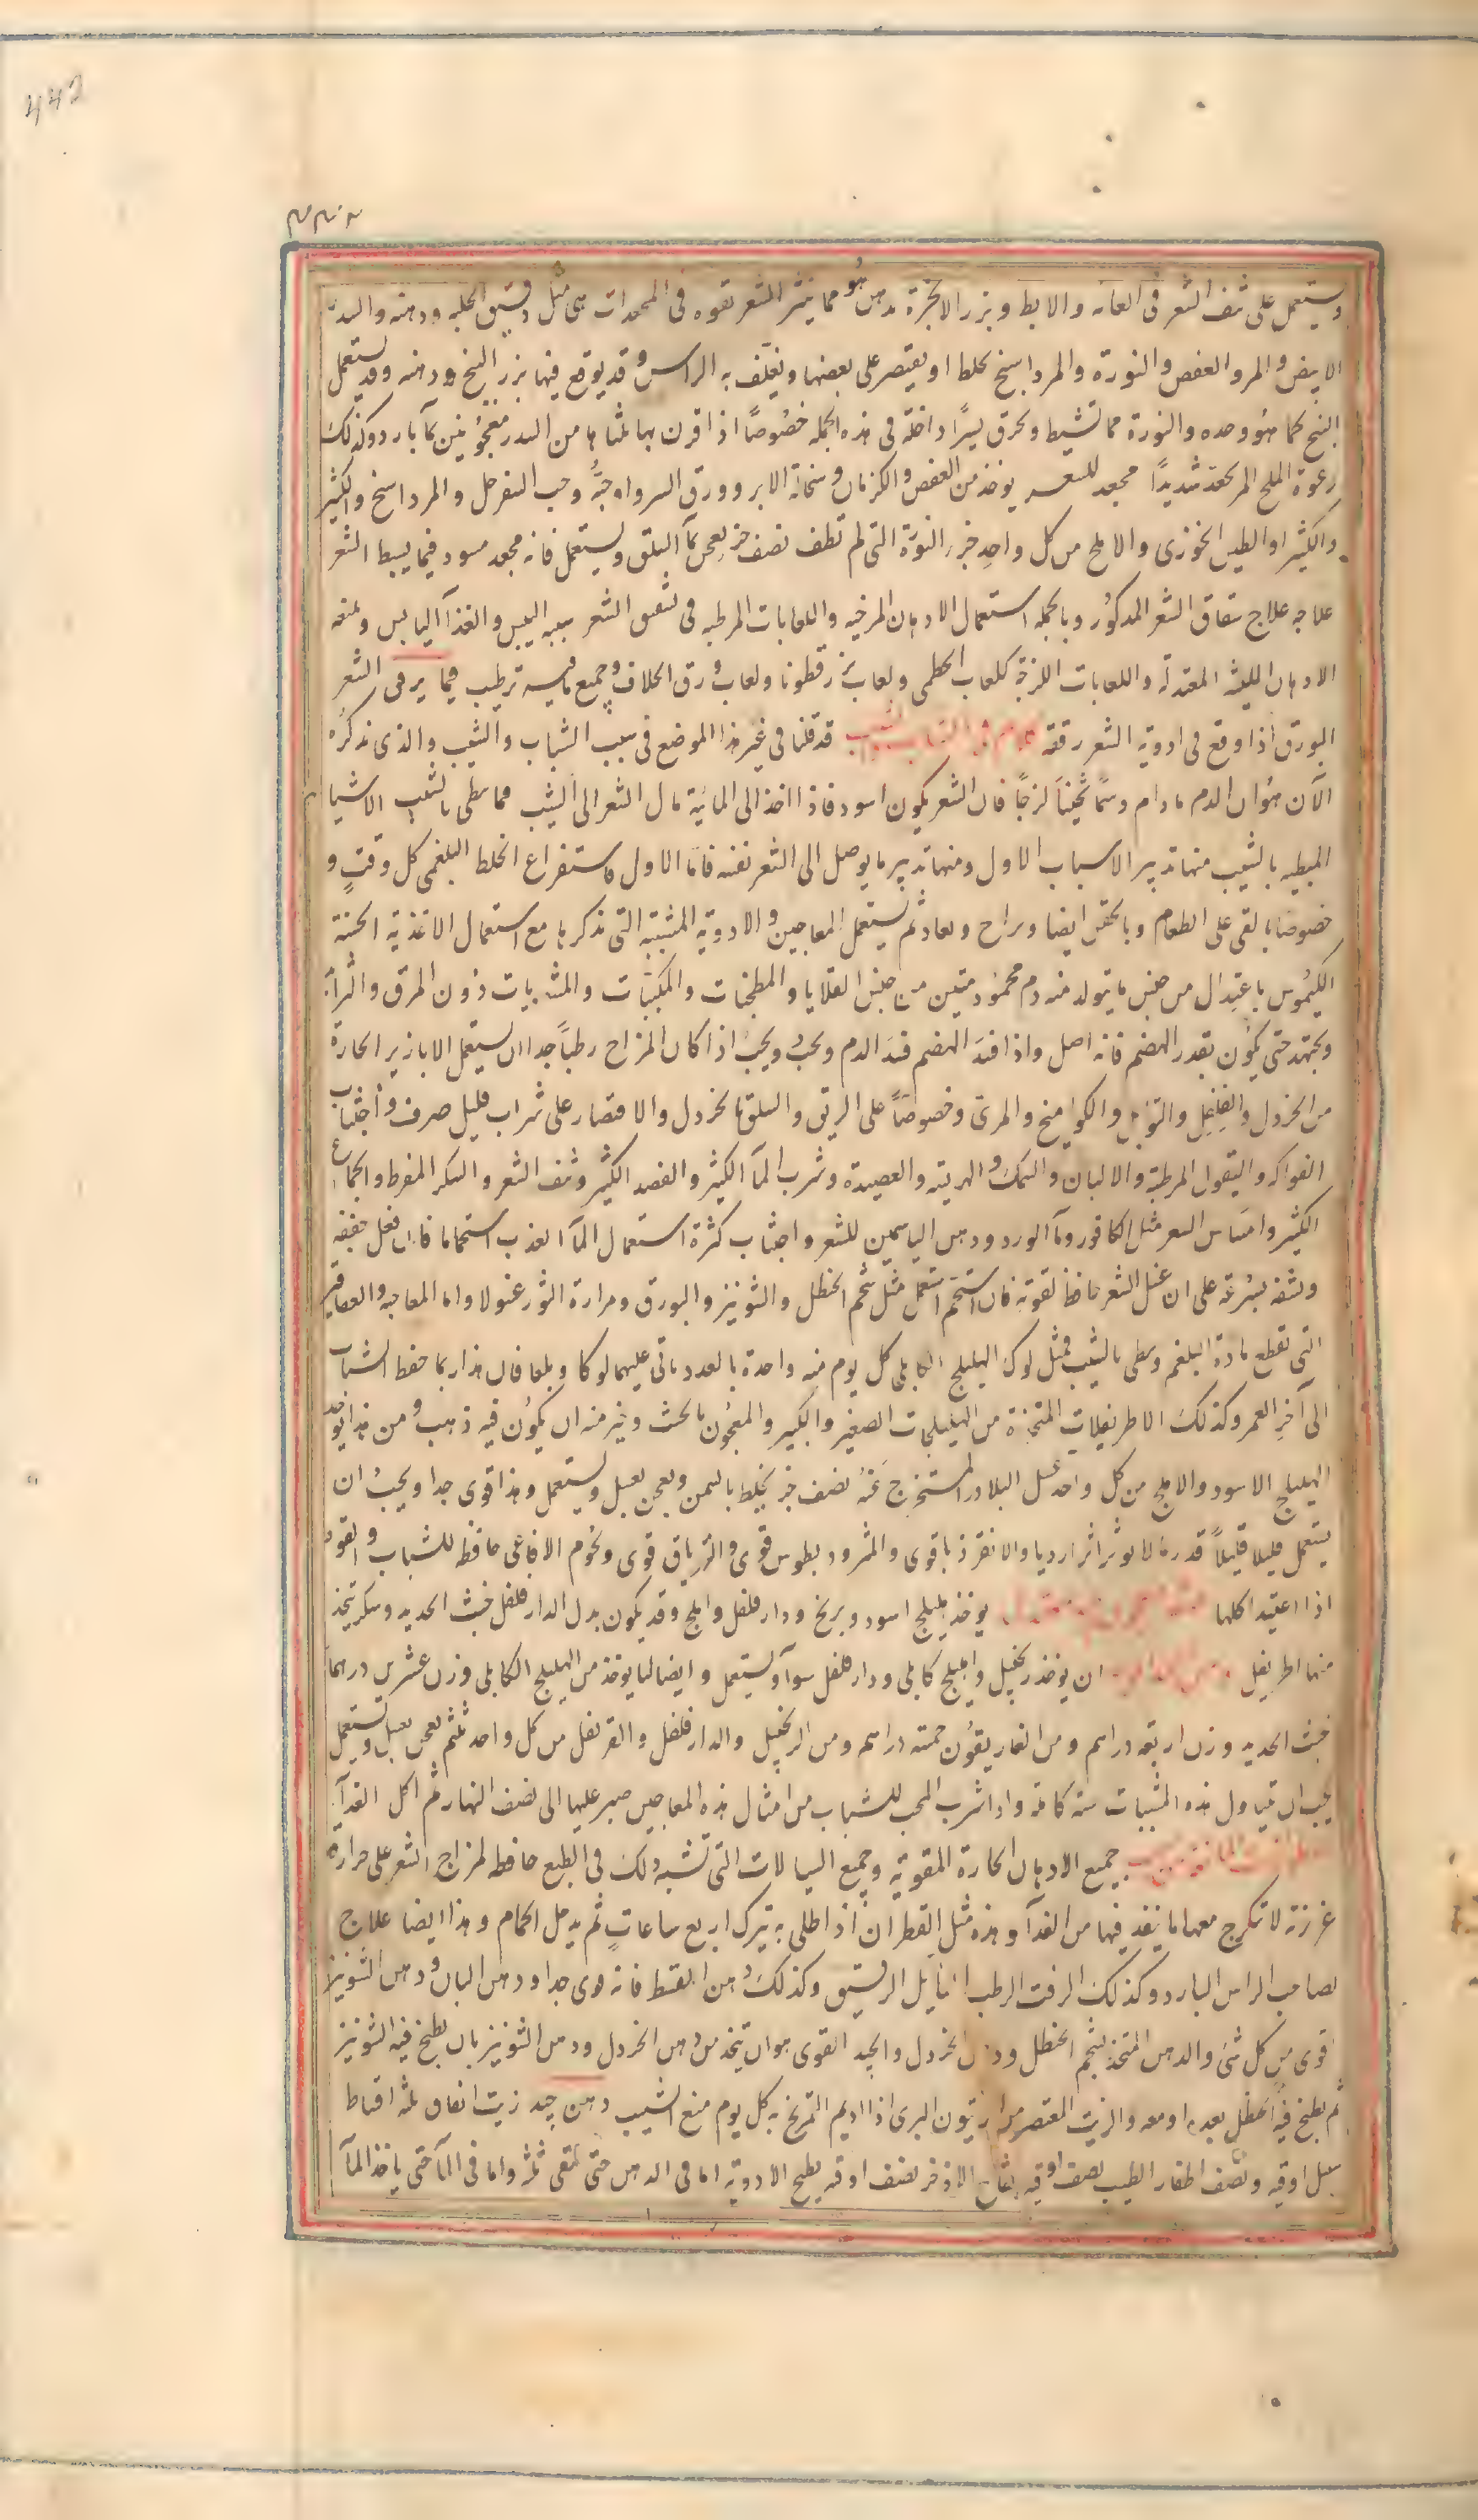 442
ويستعمل على نتف الشعر فى العانه والابط وبزر الانجرة بدهن هو مما ينثر الشعر بقوه فى المجعدات هى مثل دقيق الحلبه ودهنه والسدر
الابيض والمر والعفص والنورة والمرداسنج يخلط او يقتصر على بعضها ويغلف به الراس وقد يوقع فيها بزر البنج ودهنه وقد يستعمل
البنج كما هو وحده والنورة مما تشيط وتحرق يسيرًا داخلة فى هذه الجمله خصوصًا اذا قرن بها مثلاها من السدر معجونين بمآ بارد وكذلك
رغوة الملح المر تجعد شديدًا مجعد للشعر يوخذ من العفص والكزمازك وسحالة الابر وورق السرو او حبه وحب السفرجل والمرداسنج والكثير
والكثيرا والطين الخوزى والاملج من كل واحد جزء النورة التى لم تطف نصف جزء يعجن بمآ السلق ويستعمل فانه مجعد مسود فيما يبسط الشعر
علاجه علاج شقاق الشعر المذكور وبالجمله استعمال الادهان المرخيه واللعابات المرطبه فى تشقق الشعر سببه اليبس والغذآ اليابس ويمنعه
الادهان اللينه المعتدلة واللعابات اللزجة كلعاب الخطمى ولعاب بزر قطونا ولعاب ورق الخلاف وجميع ما فيه ترطيب فيما يرقق الشعر
البورق اذا وقع فى ادوية الشعر رققه كلام فى الشباب والشيب قد قلنا فى غير هذا الموضع فى سبب الشباب والشيب والذى نذكره
الآن هو ان الدم ما دام دسمًا ثخينًا لزجًا فان الشعر يكون اسود فاذا اخذ الى المائية مال الشعر الى الشيب مما يبطى بالشيب الاشيا
المبطيه بالشيب منها تدبير الاسباب الاول ومنها تدبير ما يوصل الى الشعر نفسه فاما الاول فاستفراغ الخلط البلغمى كل وقت و
خصوصًا بالقى على الطعام وبالحقن ايضا ويراح ويعاد ثم يستعمل المعاجين والادوية المشببة التى نذكرها مع استعمال الاغذية الحسنة
الكيموس باعتدال من جنس ما يتولد منه دم محمود متين من جنس القلايا والمطجنات والمكببات والمشويات دون المرق والثرآئد
ويجتهد حتى يكون بقدر الهضم فانه اصل واذا فسد الهضم فسد الدم ويجب ويجب اذا كان المزاج رطبًا جدا ان يستعمل الابازير الحارة
من الخردل والفلفل والتوابل والكواميخ والمرى وخصوصًا على الريق والسلق بالخردل والاقتصار على شراب قليل صرف واجتناب
الفواكه والبقول المرطبة والالبان والسمك والهريسة والعصيدة وشرب المآ الكثير والفصد الكثير ونتف الشعر والسكر المفرط والجماع
الكثير وامساس الشعر مثل الكافور ومآ الورد ودهن الياسمين للشعر واجتناب كثرة استعمال المآ العذب استحماما فان فعل جففه
ونشفه بسرعة على ان غسل الشعر حافظ لقوته فان استحم استعمل مثل شحم الحنظل والشونيز والبورق ومرارة الثور غسولا واما المعاجين والعقاقير
التى تقطع مادة البلغم وتبطى بالشيب فمثل لوك الهليلج الكابلى كل يوم منه واحدة بالعدد ياتى عليها لوكا وبلعا فان هذا ربما حفظ الشباب
الى آخر العمر وكذلك الاطريفلات المتخذة من الهليلجات الصغير والكبير والمعجون بالخبث وخير منه ان يكون فيه ذهب ومن هذا يوخذ
الهليلج الاسود والاملج من كل واحد عسل البلادر المستخرج عنه نصف جزء يخلط بالسمن ويعجن بعسل ويستعمل وهذا قوى جدا ويجب ان
يستعمل قليلا قليلاً قدر ما لا يوثر اثرا رديا والانقرذيا قوى والمثروديطوس قوى والترياق قوى ولحوم الافاعى حافظه للشباب والقوه
اذا اعتيد اكلها يوخذ هليلج اسود وبرنج ودار فلفل واملج وقد يكون بدل الدار فلفل خبث الحديد وسكر يتخذ
منها اطريفل ان يوخذ زنجبيل واهليلج كابلى ودار فلفل سوآ ويستعمل وايضا لنا يوخذ من الهليلج الكابلى وزن عشرين درهما
خبث الحديد وزن اربعة دراهم ومن الغاريقون خمسة دراهم ومن الزنجبيل والدار فلفل والقرنفل من كل واحد ثلثه يعجن بعسل ويستعمل
يجب ان تتناول هذه المشببات سنة كاملة واذا شرب المحب للشباب من امثال هذه المعاجين صبر عليها الى نصف النهار ثم اكل الغذآ
جميع الادهان الحارة المقوية وجميع السيالات التى تشبه ذلك فى الطبع حافظه لمزاج الشعر على حرارة
غريزة لا تكرج معها ما ينفذ فيها من الغذآ وهذه مثل القطران اذا طلى به يترك اربع ساعات ثم يدخل الحمام وهذا ايضا علاج
لصاحب الراس البارد وكذلك الزفت الرطب السايل الرقيق وكذلك دهن القسط فانه قوى جدا ودهن البان ودهن الشونيز
قوى من كل شى والدهن المتخذ بشحم الحنظل ودهن الخردل والجيد القوى هو ان يتخذ من دهن الخردل ودهن الشونيز بان يطبخ فيه الشونيز
ثم يطبخ فيه الحنظل بعده او معه والزيت المعتصر من الزيتون البرى اذا اديم التمريخ به كل يوم منع الشيب دهن جيد زيت انفاق ثلثه اقساط
سنبل اوقيه ونصف اظفار الطيب نصف اوقيه فقاح الاذخر نصف اوقيه يطبخ الادوية اما فى الدهن حتى تلقى ثلثه واما فى المآ حتى ياخذ المآ